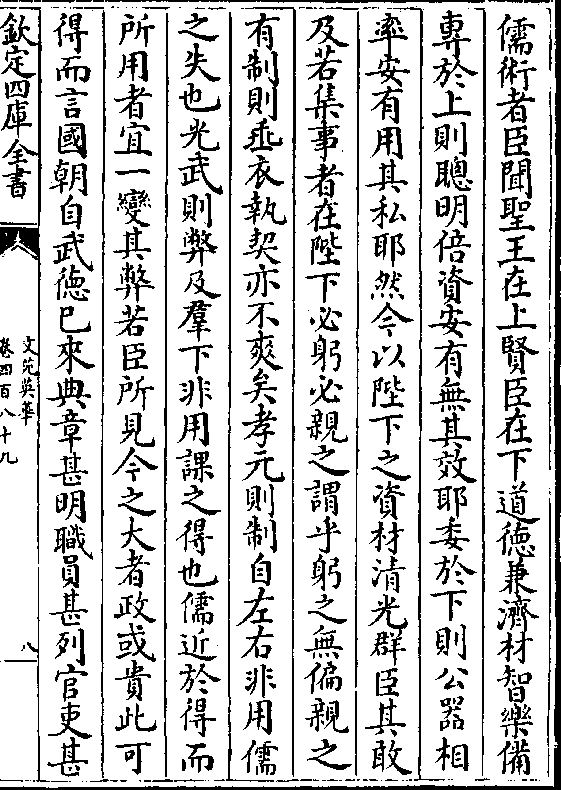 儒術者臣聞聖王在上賢臣在下道德兼濟材智樂備
專於上則聰明倍資安有無其效耶委於下則公器相
率安有用其私耶然今以陛下之資材清光群臣其敢
及若集事者在陛下必躬必親之謂乎躬之無偏親之
有制則垂衣執契亦不爽矣孝元則制自左右非用儒
之失也光武則弊及羣下非用課之得也儒近於得而
所用者宜一變其弊若臣所見今之大者政或貴此可
得而言國朝自武德已來典章甚明職員甚列官吏甚
欽定四庫全書
文苑英華
卷四百八十九
八